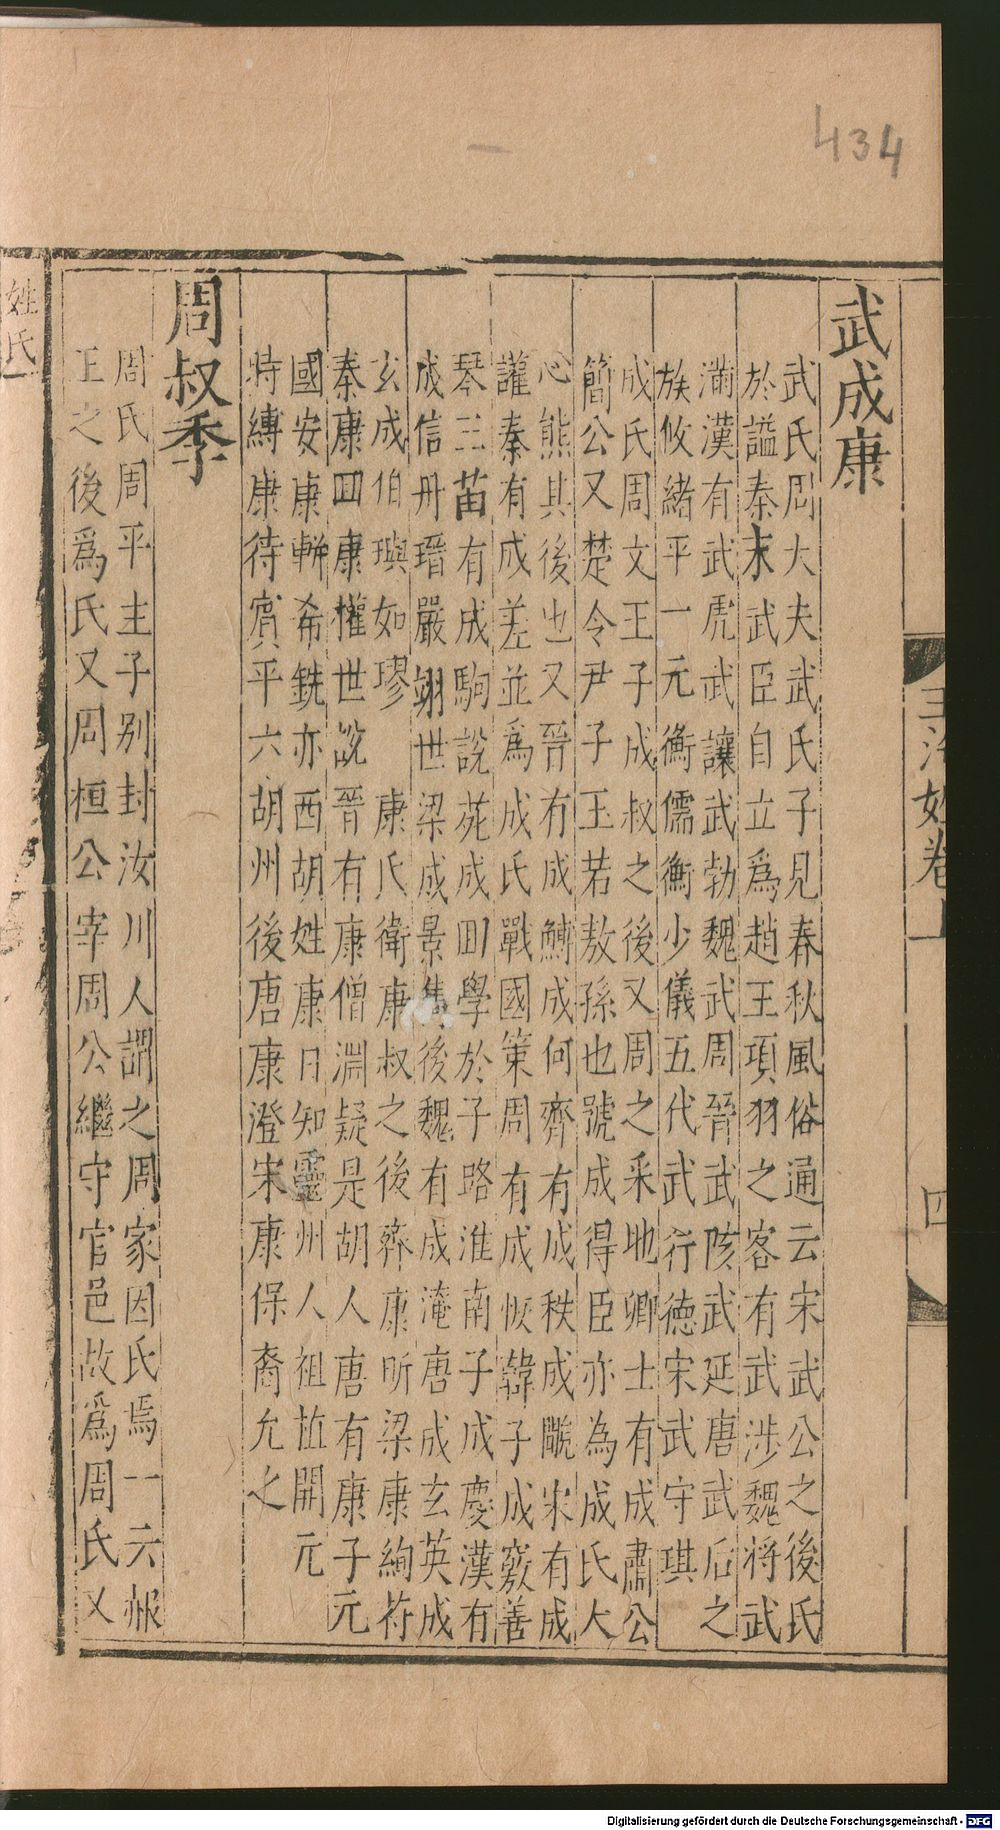 434
武成康
武氏周大夫武氏子見春秋風俗通云宋武公之後氏
於謚秦末武臣自立爲趙王項羽之客有武涉魏將武
滿漢有武虎武讓武勃魏武周晉武陔武延唐武后之
族攸緒平一元衡儒衡少儀五代武行德宋武守琪
成氏周文王子成叔之後又周之采地卿士有成肅公
簡公又楚令尹子玉若敖孫也號成得臣亦為成氏大
心熊其後也又晉有成鱄成何齊有成秩成覸宋有成
讙秦有成差並爲成氏戰國策周有成恢韓子成竅善
琴三苗有成駒說苑成回學於子路淮南子成慶漢有
成信丹瑨嚴翊世梁成景雋後魏有成淹唐成玄英成
玄成伯璵如璆 康氏衛康叔之後齊康昕梁康絢符
秦康回康權世說晉有康僧淵疑是胡人唐有康子元
國安康軿希銑亦西胡姓康日知靈州人祖植開元
時縛康待賓平六胡州後唐康澄宋康保裔允之
周叔季
周氏周平王子別封汝川人謂之周家因氏焉一云赧
王之後爲氏又周桓公宰周公繼守官邑故爲周氏又
姓氏一
王治姓卷上
四
Digitalisierung gefördert durch die Deutsche Forschungsgemeinschaft - DFG